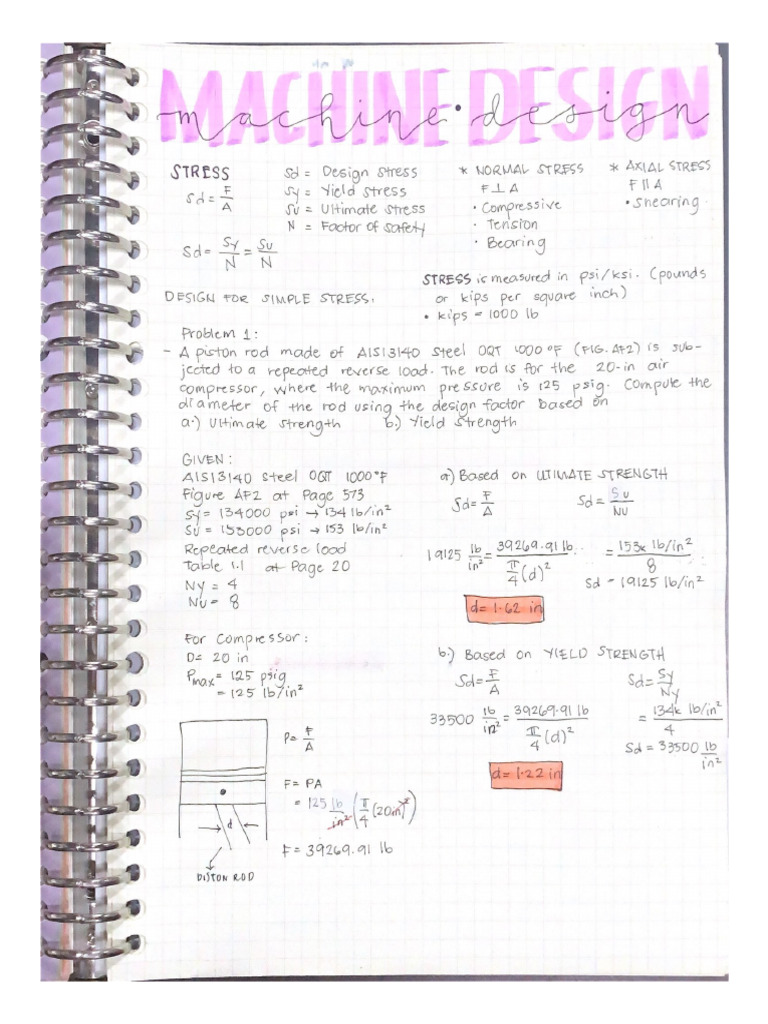 MACHINE DESIGN
machine • design
STRESS
Sd = F/A
Sd = Sy/N = Su/N
Sd = Design Stress
Sy = Yield Stress
Su = Ultimate Stress
N = Factor of Safety
* NORMAL STRESS
F ⊥ A
• Compressive
• Tension
• Bearing
* AXIAL STRESS
F || A
• Shearing
STRESS is measured in psi/ksi. (pounds
or kips per square inch)
• kips = 1000 lb
DESIGN FOR SIMPLE STRESS:
Problem 1:
- A piston rod made of AISI3140 Steel OQT 1000°F (FIG. AF2) is sub-
jected to a repeated reverse load. The rod is for the 20-in air
compressor, where the maximum pressure is 125 psig. Compute the
diameter of the rod using the design factor based on
a.) Ultimate Strength b.) Yield Strength
GIVEN:
AISI3140 Steel OQT 1000°F
Figure AF2 at Page 573
Sy = 134000 psi → 134 lb/in²
Su = 153000 psi → 153 lb/in²
Repeated reverse load
Table 1.1 at Page 20
Ny = 4
Nu = 8
For Compressor:
D = 20 in
Pmax = 125 psig
= 125 lb/in²
P = F/A
F = PA
= 125 lb/in² (π/4 (20in)²)
F = 39269.91 lb
d
PISTON ROD
a) Based on UTIMATE STRENGTH
Sd = F/A Sd = Su/Nu
19125 lb/in² = 39269.91 lb / π/4 (d)² = 153k lb/in² / 8
Sd = 19125 lb/in²
d = 1.62 in
b.) Based on YIELD STRENGTH
Sd = F/A Sd = Sy/Ny
33500 lb/in² = 39269.91 lb / π/4 (d)² = 134k lb/in² / 4
Sd = 33500 lb/in²
d = 1.22 in